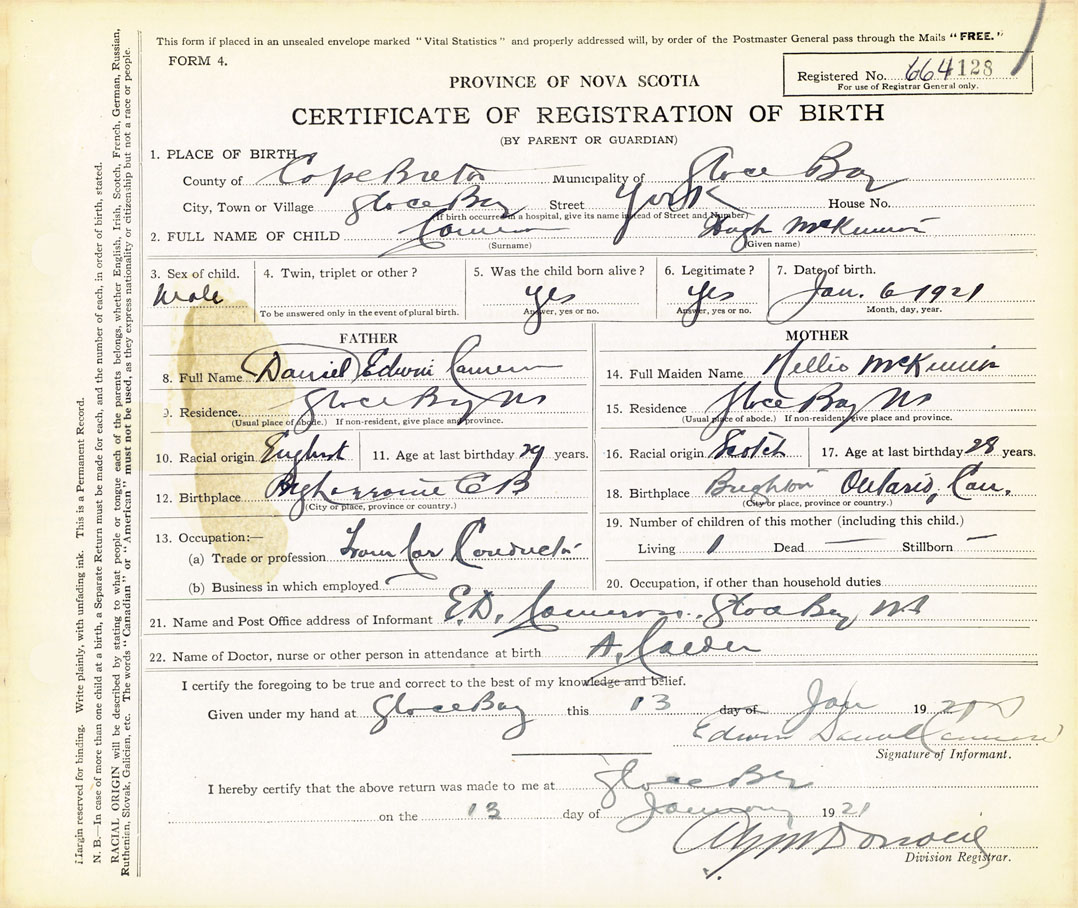 This form if placed in an unsealed envelope marked "Vital Statistics" and properly addressed will, by order of the Postmaster General pass through the Mails "FREE."
FORM 4.
Registered No. 664128
For use of Registrar General only.
PROVINCE OF NOVA SCOTIA
CERTIFICATE OF REGISTRATION OF BIRTH
(BY PARENT OR GUARDIAN)
1. PLACE OF BIRTH
County of Cape Breton Municipality of Glace Bay
City, Town or Village Glace Bay Street York House No.
(If birth occurred in a hospital, give its name instead of Street and Number)
2. FULL NAME OF CHILD Cameron Hugh McKinnon
(Surname) (Given name)
3. Sex of child. 4. Twin, triplet or other? 5. Was the child born alive? 6. Legitimate? 7. Date of birth.
Male yes yes Jan. 6 1921
To be answered only in the event of plural birth. Answer, yes or no. Answer, yes or no. Month, day, year.
FATHER
8. Full Name Daniel Edwin Cameron
9. Residence. Glace Bay NS
(Usual place of abode.) If non-resident, give place and province.
10. Racial origin English 11. Age at last birthday 29 years.
12. Birthplace C B
(City or place, province or country.)
13. Occupation:—
(a) Trade or profession Tram Car Conductor
(b) Business in which employed
MOTHER
14. Full Maiden Name Nellie McKinnon
15. Residence Glace Bay NS
(Usual place of abode.) If non-resident, give place and province.
16. Racial origin Scotch 17. Age at last birthday 28 years.
18. Birthplace Brighton Ontario, Can.
(City or place, province or country.)
19. Number of children of this mother (including this child.)
Living 1 Dead — Stillborn —
20. Occupation, if other than household duties
21. Name and Post Office address of Informant E. D. Cameron, Glace Bay NS
22. Name of Doctor, nurse or other person in attendance at birth A. Calder
I certify the foregoing to be true and correct to the best of my knowledge and belief.
Given under my hand at Glace Bay this 13 day of Jan 19
Edwin Daniel Cameron
Signature of Informant.
I hereby certify that the above return was made to me at Glace Bay
on the 13 day of January 1921
Division Registrar.
Margin reserved for binding. Write plainly, with unfading ink. This is a Permanent Record.
N. B.—In case of more than one child at a birth, a Separate Return must be made for each, and the number of each, in order of birth, stated.
RACIAL ORIGIN will be described by stating to what people or tongue each of the parents belongs, whether English, Irish, Scotch, French, German, Russian,
Ruthenian, Slovak, Galician, etc. The words "Canadian" or "American" must not be used, as they express nationality or citizenship but not a race or people.